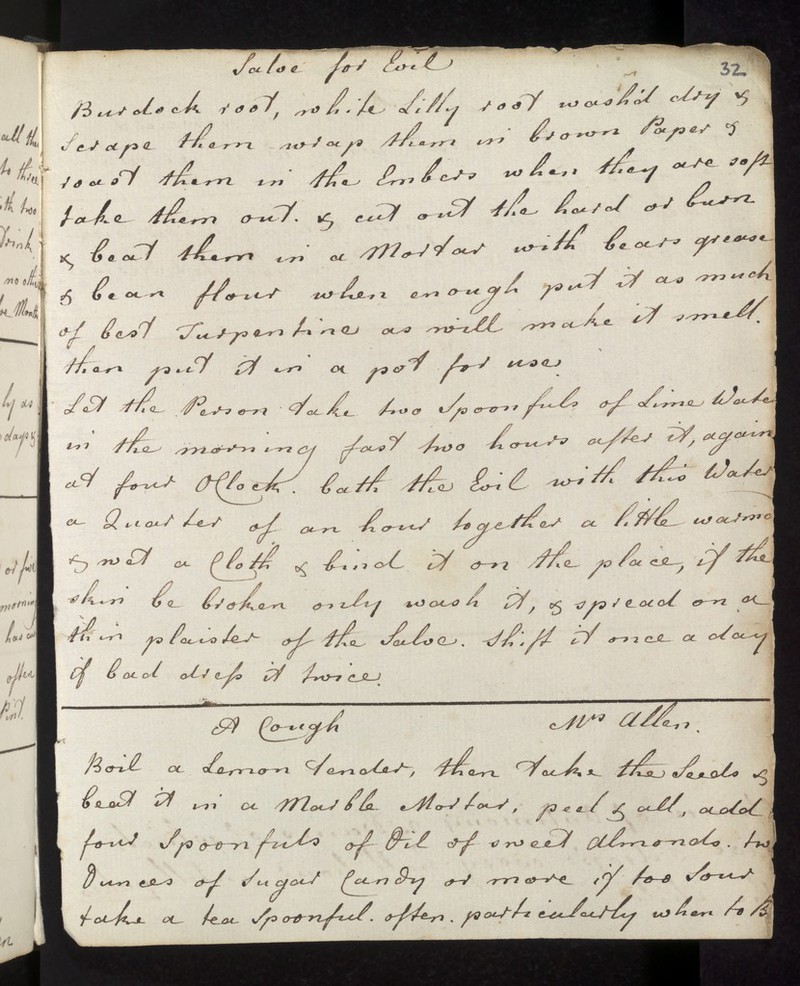 Salve for Evil
32
Burdock root, white Lilly root wash'd dry &
Scrape them wrap them in brown Paper &
roast them in the Embers when they are soft
take them out. & cut out the hard or burn
& beat them in a Mortar with bears grease
& bean flour when enough put it as much
of best Turpentine as will make it smell.
then put it in a pot for use.
Let the Person take two Spoonfuls of Lime Wate
in the morning fast two hours after it, again
at four OClock. bath the Evil with this Water
a Quarter of an hour together a little warm
& wet a Cloth & bind it on the place, if the
skin be broken only wash it, & spread on a
thin plaister of the Salve. Shift it once a day
if bad dress it twice.
A Cough Mrs Allen.
Boil a Lemon tender, then take the Seeds &
beat it in a Marble Mortar, peel & all, add
four Spoonfuls of Oil of sweet Almonds. tw
Ounces of Sugar Candy or more if too Sour
take a tea Spoonful. often. particularly when to B
all th
to three
th two
Drink.
no oth
be Month
ly as
days &
or fi
morning
has
often
Pint.